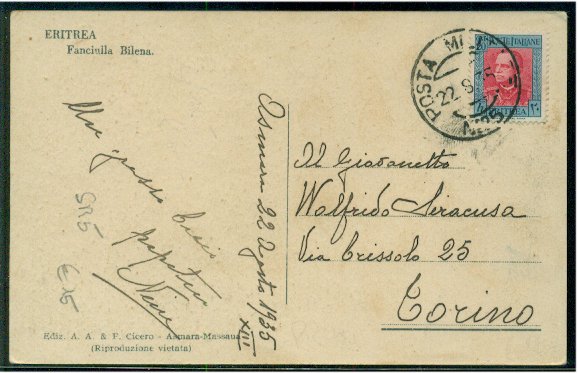 ERITREA
Fanciulla Bilena.
Un grosso bacio
Nino
SR5
€15
Asmara 22 Agosto 1935
XIII
Ediz. A. A. & F. Cicero - Asmara-Massaua
(Riproduzione vietata)
POSTE ITALIANE
ERITREA
POSTA MI
22 8 35
N.25
Al Giovanetto
Walfrido Seracusa
Via Crissolo 25
Torino